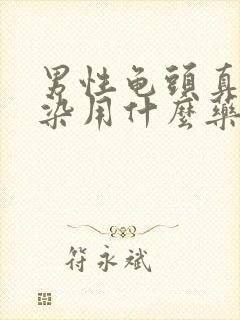 男性龟頭真
染用什麽藥
符永斌